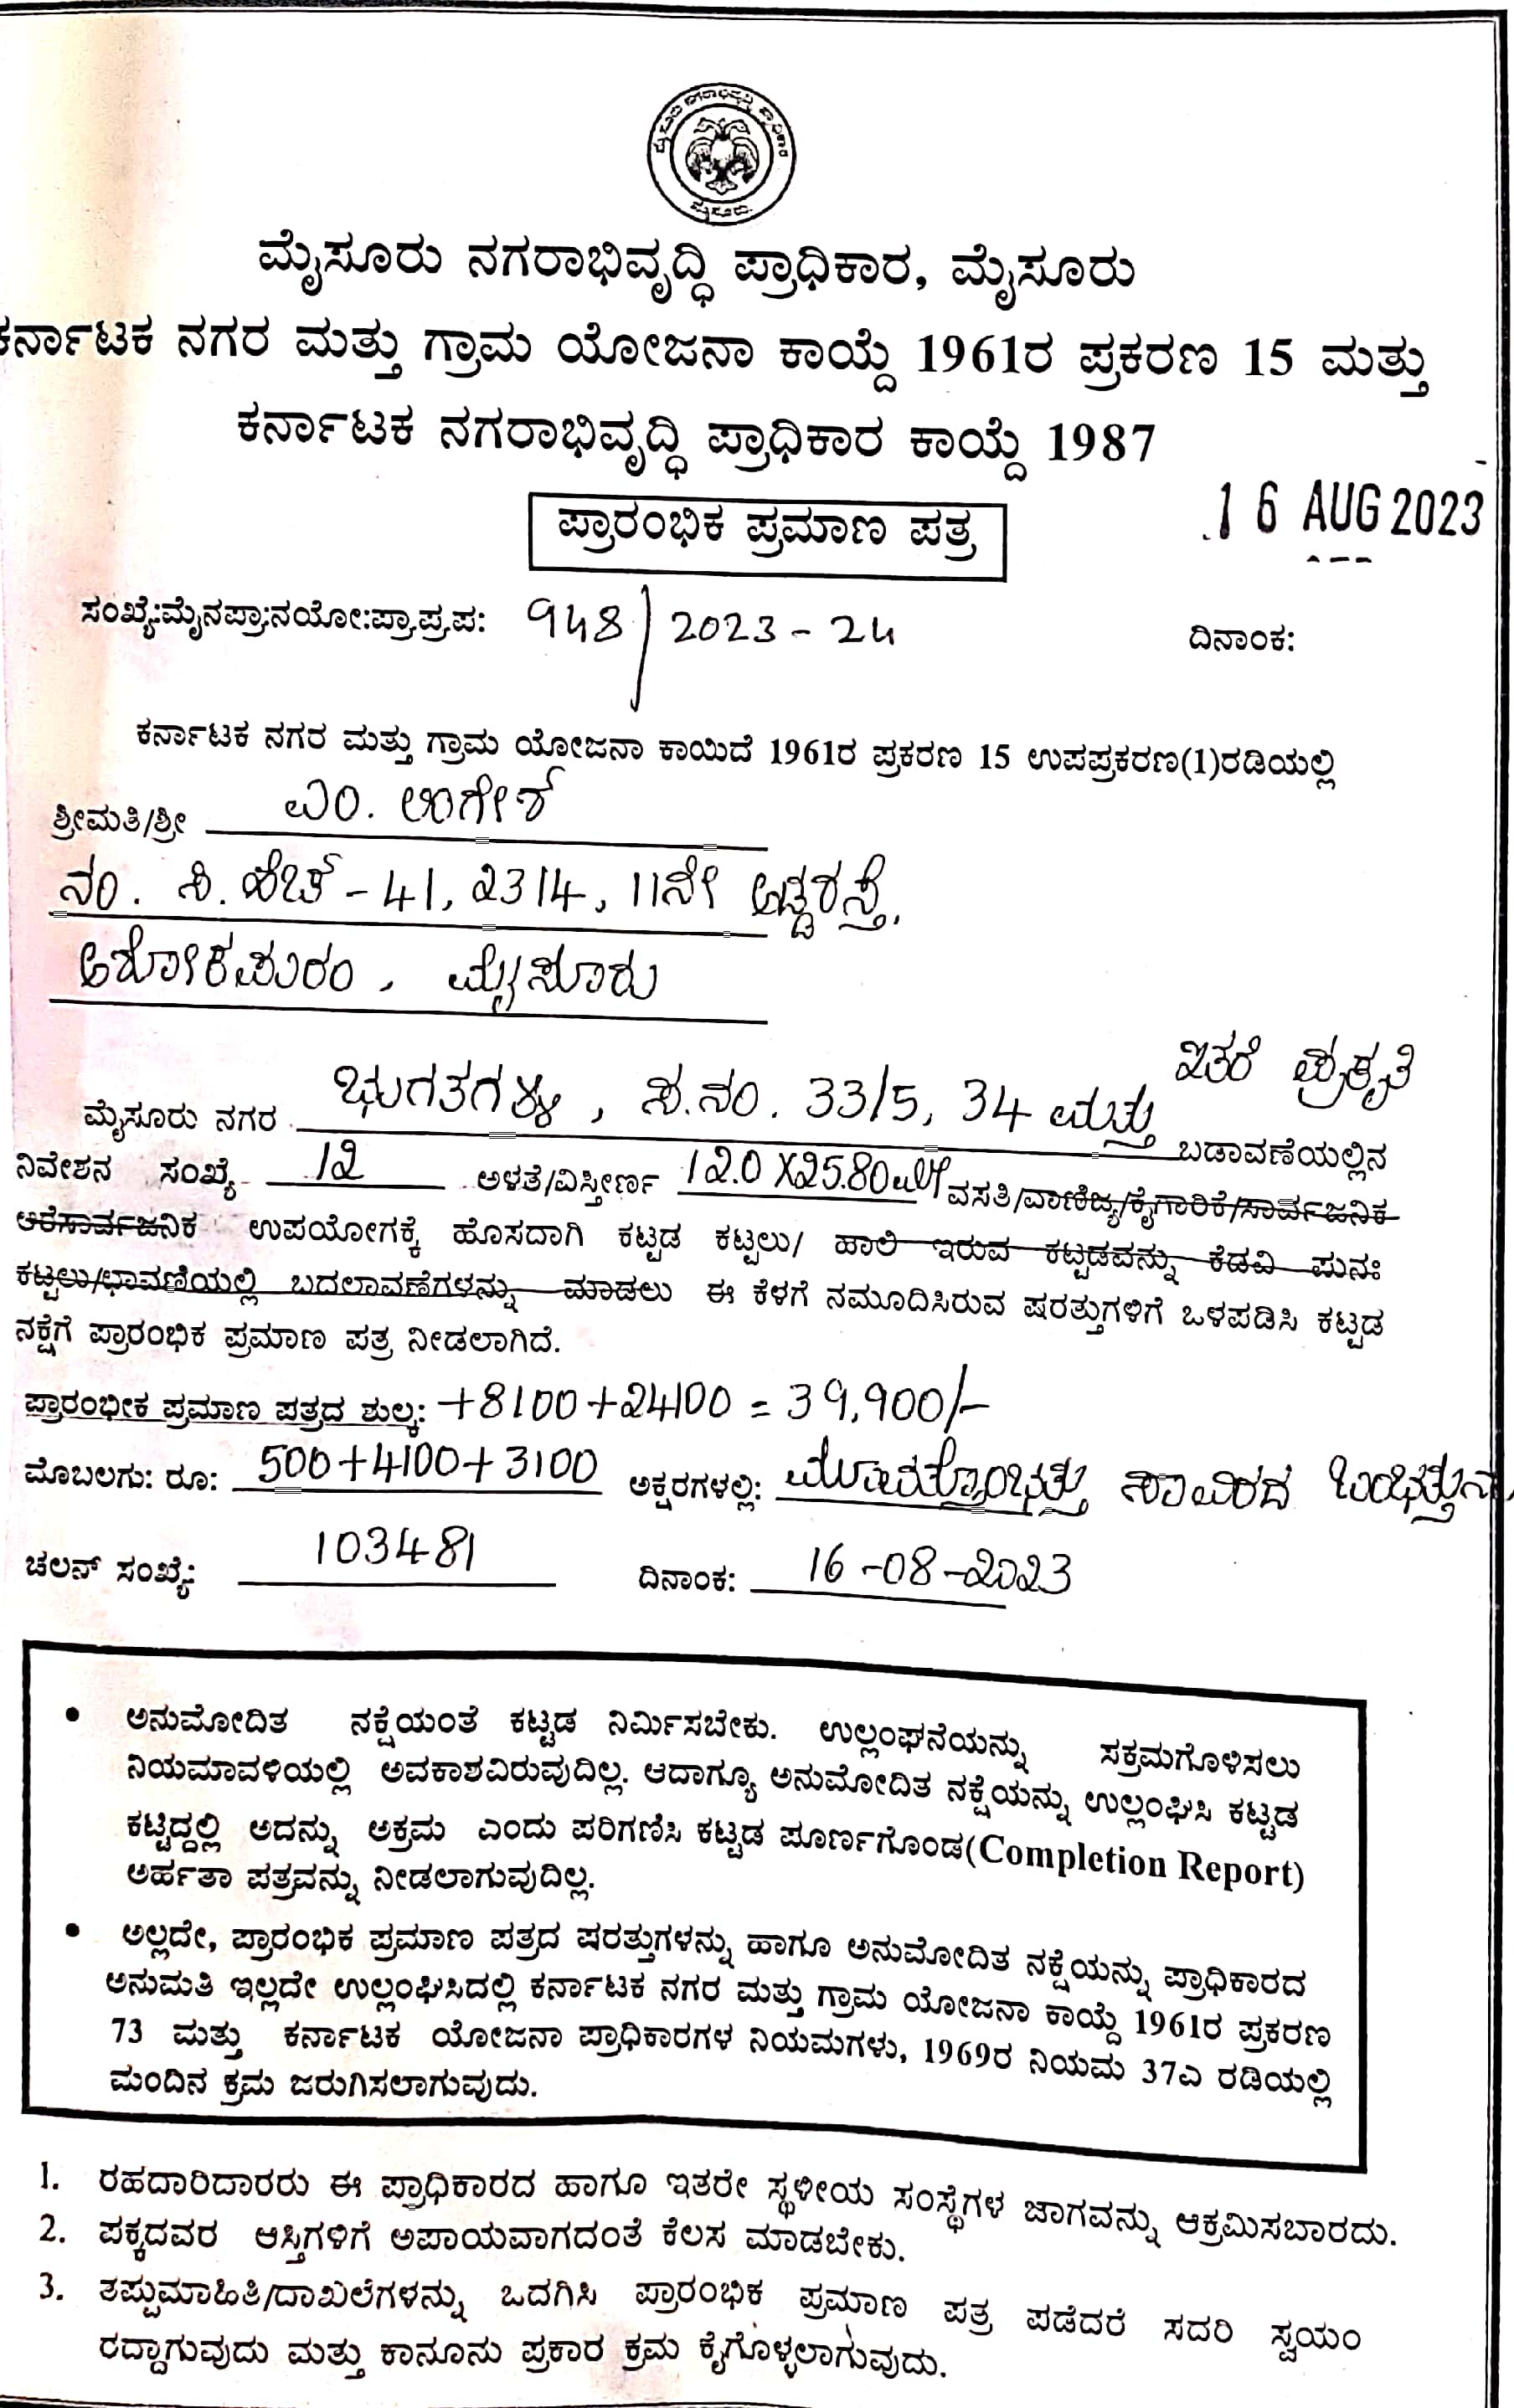 ಮೈಸೂರು ನಗರಾಭಿವೃದ್ಧಿ ಪ್ರಾಧಿಕಾರ
ಮೈಸೂರು.
ಮೈಸೂರು ನಗರಾಭಿವೃದ್ಧಿ ಪ್ರಾಧಿಕಾರ, ಮೈಸೂರು
ಕರ್ನಾಟಕ ನಗರ ಮತ್ತು ಗ್ರಾಮ ಯೋಜನಾ ಕಾಯ್ದೆ 1961ರ ಪ್ರಕರಣ 15 ಮತ್ತು
ಕರ್ನಾಟಕ ನಗರಾಭಿವೃದ್ಧಿ ಪ್ರಾಧಿಕಾರ ಕಾಯ್ದೆ 1987
16 AUG 2023
ಪ್ರಾರಂಭಿಕ ಪ್ರಮಾಣ ಪತ್ರ
ಸಂಖ್ಯೆ:ಮೈನಪ್ರಾ:ನಯೋ:ಪ್ರಾಪ್ರಪ: 948/2023-24 ದಿನಾಂಕ:
ಕರ್ನಾಟಕ ನಗರ ಮತ್ತು ಗ್ರಾಮ ಯೋಜನಾ ಕಾಯಿದೆ 1961ರ ಪ್ರಕರಣ 15 ಉಪಪ್ರಕರಣ(1)ರಡಿಯಲ್ಲಿ
ಶ್ರೀಮತಿ/ಶ್ರೀ ಎಂ.
ನಂ. ಸಿ.ಹೆಚ್-41, 2314, 11ನೇ ಅಡ್ಡರಸ್ತೆ,
ಅಶೋಕಪುರಂ, ಮೈಸೂರು
ಇತರೆ
ಮೈಸೂರು ನಗರ ಭುಗತಗಳ್ಳಿ, ಸ.ನಂ. 33/5, 34 ಮತ್ತು ಬಡಾವಣೆಯಲ್ಲಿನ
ನಿವೇಶನ ಸಂಖ್ಯೆ 12 ಅಳತೆ/ವಿಸ್ತೀರ್ಣ 12.0X25.80 ಮೀ ವಸತಿ/ವಾಣಿಜ್ಯ/ಕೈಗಾರಿಕೆ/ಸಾರ್ವಜನಿಕ
ಅರೆಸಾರ್ವಜನಿಕ ಉಪಯೋಗಕ್ಕೆ ಹೊಸದಾಗಿ ಕಟ್ಟಡ ಕಟ್ಟಲು/ ಹಾಲಿ ಇರುವ ಕಟ್ಟಡವನ್ನು ಕೆಡವಿ ಪುನಃ
ಕಟ್ಟಲು/ಛಾವಣಿಯಲ್ಲಿ ಬದಲಾವಣೆಗಳನ್ನು ಮಾಡಲು ಈ ಕೆಳಗೆ ನಮೂದಿಸಿರುವ ಷರತ್ತುಗಳಿಗೆ ಒಳಪಡಿಸಿ ಕಟ್ಟಡ
ನಕ್ಷೆಗೆ ಪ್ರಾರಂಭಿಕ ಪ್ರಮಾಣ ಪತ್ರ ನೀಡಲಾಗಿದೆ.
ಪ್ರಾರಂಭೀಕ ಪ್ರಮಾಣ ಪತ್ರದ ಶುಲ್ಕ: +8100+24100 = 39,900/-
ಮೊಬಲಗು: ರೂ: 500+4100+3100 ಅಕ್ಷರಗಳಲ್ಲಿ: ಮೂವತ್ತೊಂಭತ್ತು ಸಾವಿರದ
ಚಲನ್ ಸಂಖ್ಯೆ: 103481 ದಿನಾಂಕ: 16-08-2023
• ಅನುಮೋದಿತ ನಕ್ಷೆಯಂತೆ ಕಟ್ಟಡ ನಿರ್ಮಿಸಬೇಕು. ಉಲ್ಲಂಘನೆಯನ್ನು ಸಕ್ರಮಗೊಳಿಸಲು
ನಿಯಮಾವಳಿಯಲ್ಲಿ ಅವಕಾಶವಿರುವುದಿಲ್ಲ. ಆದಾಗ್ಯೂ ಅನುಮೋದಿತ ನಕ್ಷೆಯನ್ನು ಉಲ್ಲಂಘಿಸಿ ಕಟ್ಟಡ
ಕಟ್ಟಿದ್ದಲ್ಲಿ ಅದನ್ನು ಅಕ್ರಮ ಎಂದು ಪರಿಗಣಿಸಿ ಕಟ್ಟಡ ಪೂರ್ಣಗೊಂಡ(Completion Report)
ಅರ್ಹತಾ ಪತ್ರವನ್ನು ನೀಡಲಾಗುವುದಿಲ್ಲ.
• ಅಲ್ಲದೇ, ಪ್ರಾರಂಭಿಕ ಪ್ರಮಾಣ ಪತ್ರದ ಷರತ್ತುಗಳನ್ನು ಹಾಗೂ ಅನುಮೋದಿತ ನಕ್ಷೆಯನ್ನು ಪ್ರಾಧಿಕಾರದ
ಅನುಮತಿ ಇಲ್ಲದೇ ಉಲ್ಲಂಘಿಸಿದಲ್ಲಿ ಕರ್ನಾಟಕ ನಗರ ಮತ್ತು ಗ್ರಾಮ ಯೋಜನಾ ಕಾಯ್ದೆ 1961ರ ಪ್ರಕರಣ
73 ಮತ್ತು ಕರ್ನಾಟಕ ಯೋಜನಾ ಪ್ರಾಧಿಕಾರಗಳ ನಿಯಮಗಳು, 1969ರ ನಿಯಮ 37ಎ ರಡಿಯಲ್ಲಿ
ಮಂದಿನ ಕ್ರಮ ಜರುಗಿಸಲಾಗುವುದು.
1. ರಹದಾರಿದಾರರು ಈ ಪ್ರಾಧಿಕಾರದ ಹಾಗೂ ಇತರೇ ಸ್ಥಳೀಯ ಸಂಸ್ಥೆಗಳ ಜಾಗವನ್ನು ಆಕ್ರಮಿಸಬಾರದು.
2. ಪಕ್ಕದವರ ಆಸ್ತಿಗಳಿಗೆ ಅಪಾಯವಾಗದಂತೆ ಕೆಲಸ ಮಾಡಬೇಕು.
3. ತಪ್ಪುಮಾಹಿತಿ/ದಾಖಲೆಗಳನ್ನು ಒದಗಿಸಿ ಪ್ರಾರಂಭಿಕ ಪ್ರಮಾಣ ಪತ್ರ ಪಡೆದರೆ ಸದರಿ ಸ್ವಯಂ
ರದ್ದಾಗುವುದು ಮತ್ತು ಕಾನೂನು ಪ್ರಕಾರ ಕ್ರಮ ಕೈಗೊಳ್ಳಲಾಗುವುದು.